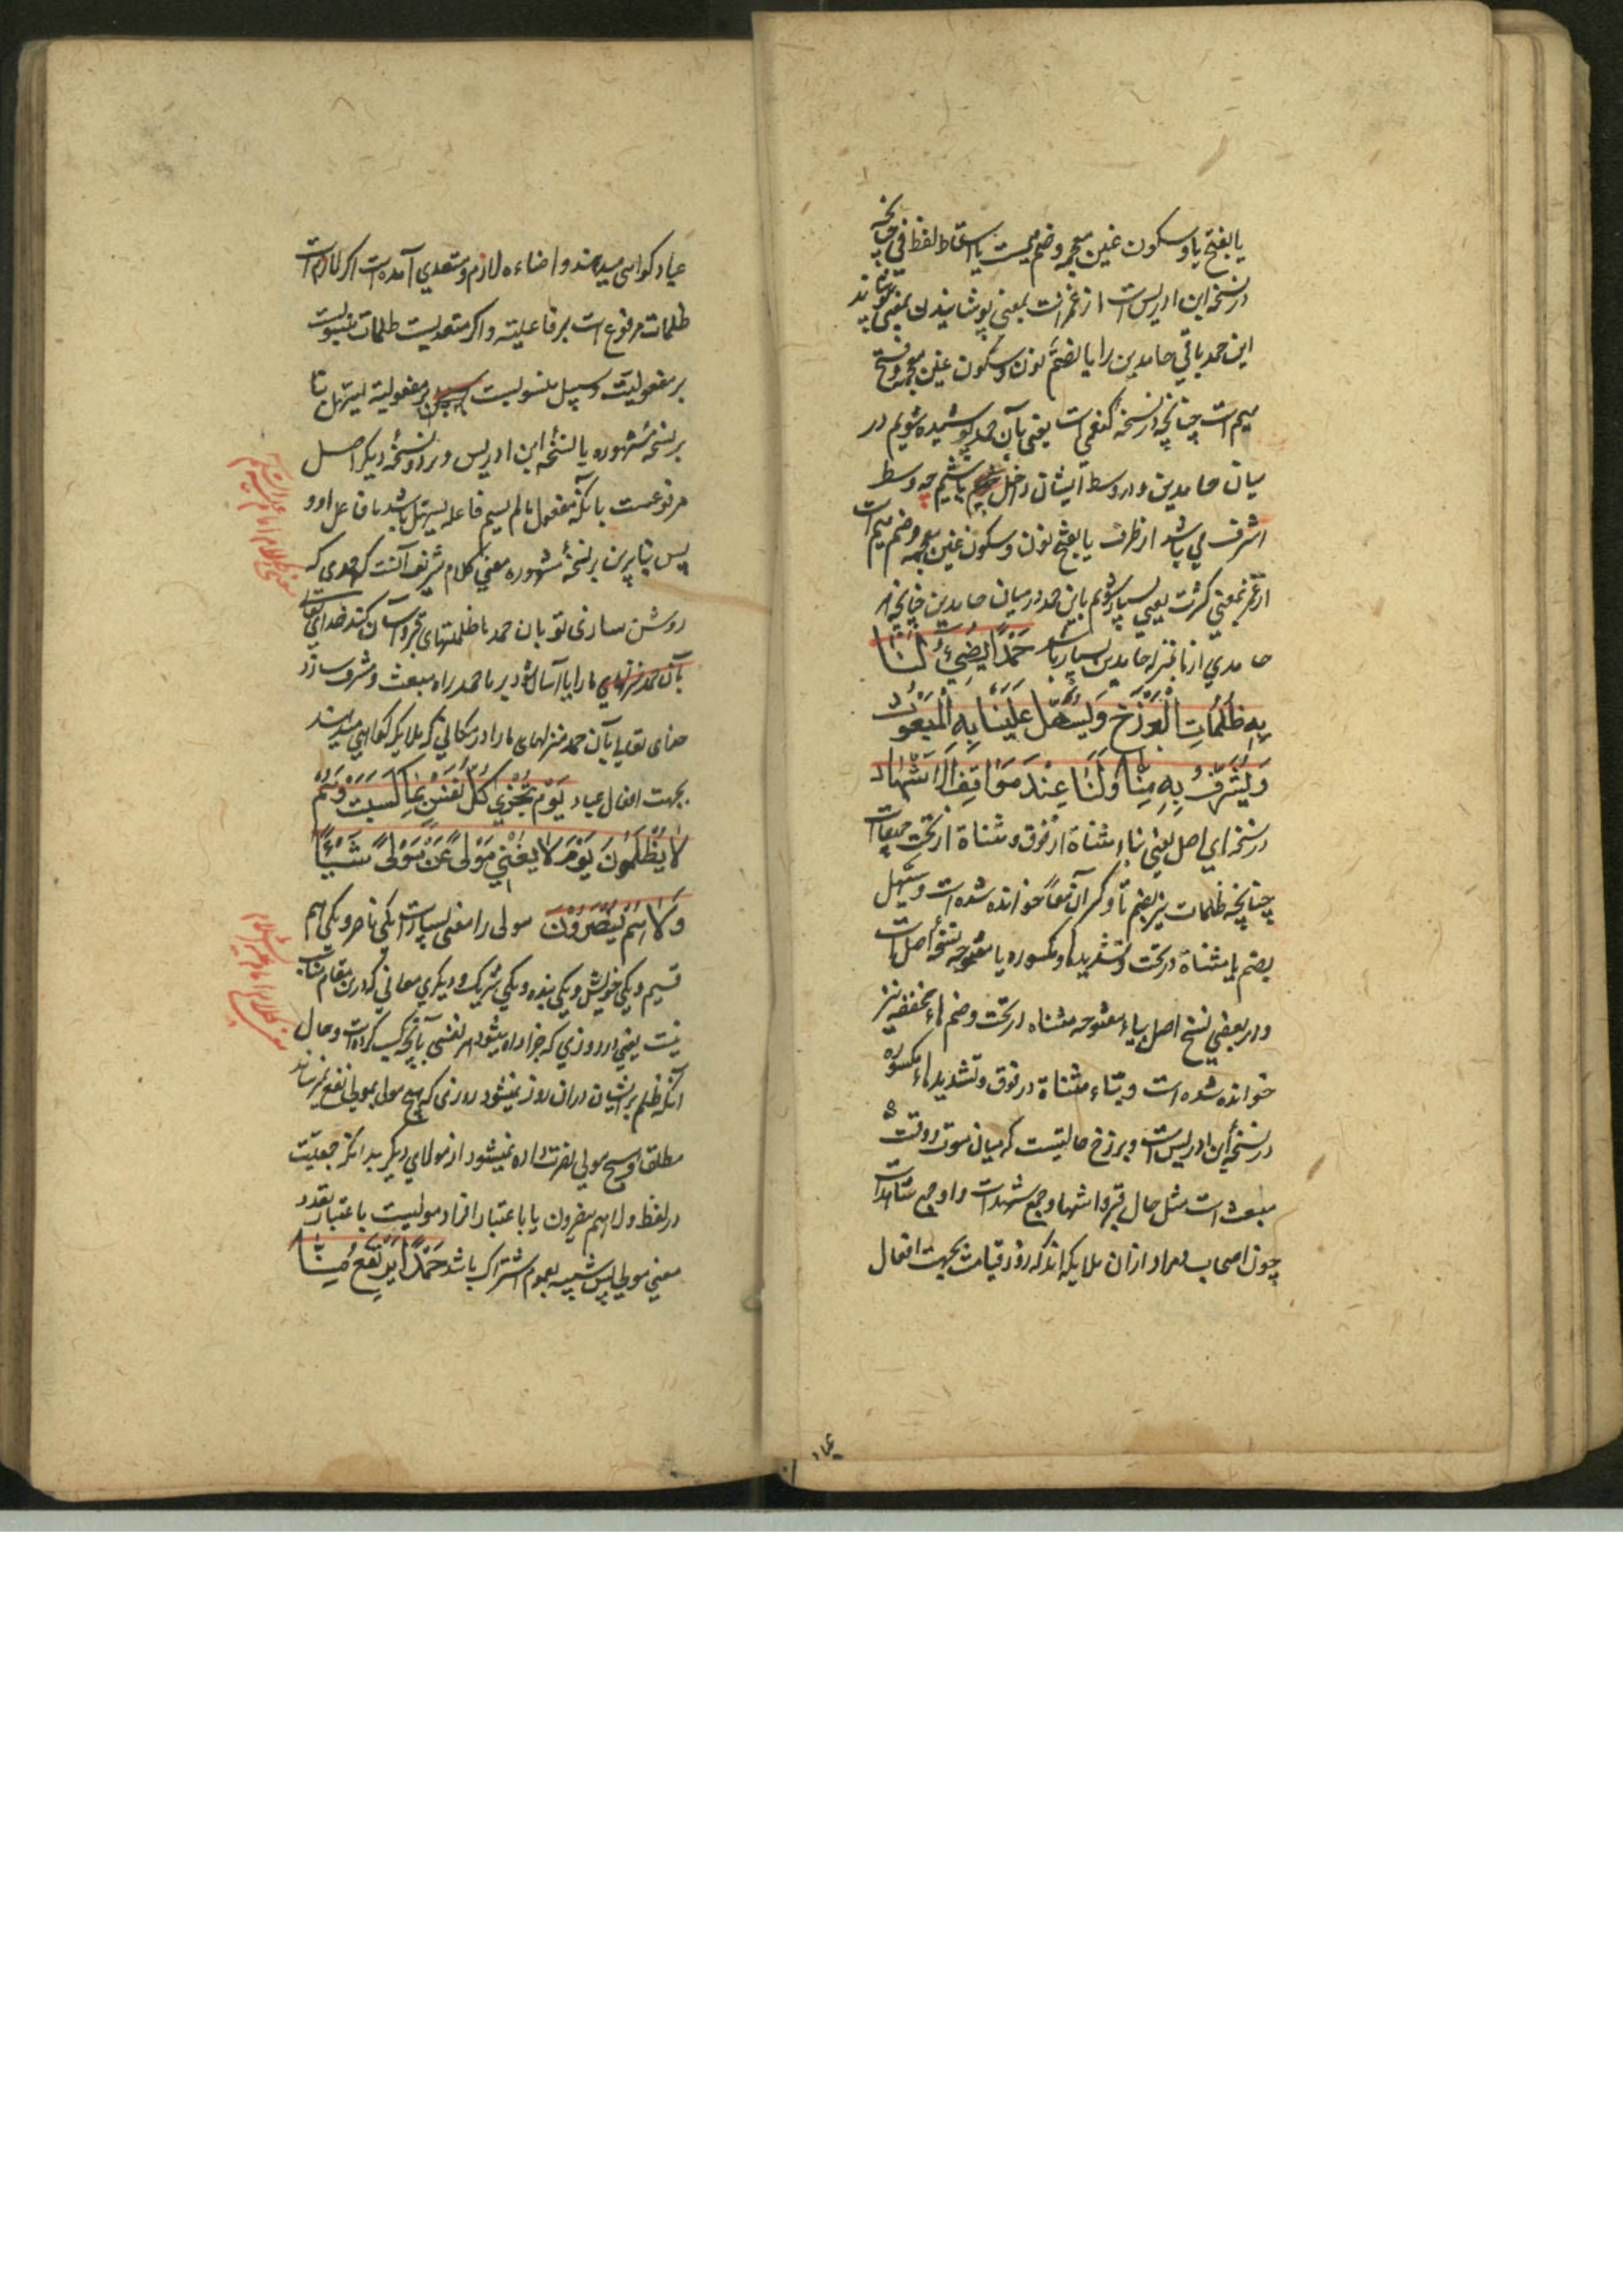 یا بفتح یا و سکون غین معجمه و ضم میمست یا اسقاط لفظ فی چنانچه
در نسخه ابن ادریس است از غمرانست بمعنی پوشانیدن یعنی پوشاند
این حمد باقی حامدین را یا بضم نون و سکون غین معجمه و فتح
میم است چنانچه در نسخه کفعمی است یعنی بآن حمد پوشیده شویم در
میان حامدین و در وسط ایشان داخل باشیم چه وسط
اشرف می باشد از طرف یا بفتح نون و سکون غین معجمه و ضم میم است
از غمر بمعنی کثرت یعنی بسیار شویم باین حمد در میان حامدین چنانچه هر
حامدی از ما بمنزله حامدین بسیار باشد حَمْدًا یُضِیءُ لَنَا
بِهِ ظُلُمَاتِ الْبَرْزَخِ وَ یُسَهِّلُ عَلَیْنَا بِهِ الْمَبْعَثِ
وَ یُشَرِّفُ بِهِ مَنَازِلَنَا عِنْدَ مَوَاقِفِ الْاَشْهَادِ
در نسخه ای اصل یعنی بتاء مثناة از فوق و مثناة از تحت جمیعا است
چنانچه ظلمات نیز بضم تا و کسر آن معاً خوانده شده است و یسهل
بضم یا مثناة در تحت و تشدید هاء مکسوره یا مفتوحه نسخه اصل است
و در بعضی نسخ اصل بیاء مفتوحه مثناه در تحت و ضم هاء مخففه نیز
خوانده شده است و بتاء مثناة در فوق و تشدید هاء مکسوره
در نسخه ابن ادریس است و برزخ حالتیست که میان موت و وقت
مبعث است مثل حال قبر و اشهاد جمع شهد است و او جمع شاهد است
چون اصحاب و مراد از ان ملایکه اند که روز قیامت بجهت افعال
عباد کواهی میدهند و اضاءه لازم و متعدی آمده است اکر لازم است
ظلمات مرفوع است بر فاعلیته و اکر متعدیست ظلمات منصوبست
بر مفعولیت و سبیل منصوبست بر مفعولیة لیسهل بنا
بر نسخه مشهوره یا نسخه ابن ادریس و بر دو نسخه دیکر اصل
مرفوعست بانکه مفعول مالم یسم فاعله یسهل باشد یا فاعل او و
پس بنا برین بر نسخه مشهوره معنی کلام شریف آنست که حمدی که
روشن سازی تو بان حمد ما ظلمتهای قبر و آسان کند خدای تعالی
بآن حمد ما را یا آسان شود بر ما حمد راه مبعث و مشرف سازد
خدای تعالی بآن حمد منزلهای ما را در مکانی که ملایکه کواهی میدهند
بجهت افعال عباد یَوْمَ تُجْزَی کُلُّ نَفْسٍ بِمَا کَسَبَتْ وَ هُمْ
لَا یُظْلَمُونَ یَوْمَ لَا یُغْنِی مَوْلًی عَنْ مَوْلًی شَیْئًا
وَ لَا هُمْ یُنْصَرُونَ مولی را معنی بسیار است یکی ناصر و یکی هم
قسیم و یکی خویش و یکی بنده و یکی شریک و دیکری معانی که درین مقام مناسب
نیست یعنی در روزی که جزا داده میشود هر نفسی بآنچه کسب کرده است و حال
آنکه ظلم بر ایشان دران روز نمیشود روزی که هیچ مولی بمولی نفع نمیرساند
مطلق و هیچ مولی نصرت داده نمیشود از مولای دیکر بدانکه جمعیت
در لفظ و لا هم ینصرون یا باعتبار افراد مولیست یا عتبار تعدد
معنی مولی پس شبیه بعموم اشتراک باشد حَمْدًا یَرْتَفِعُ مِنَّا